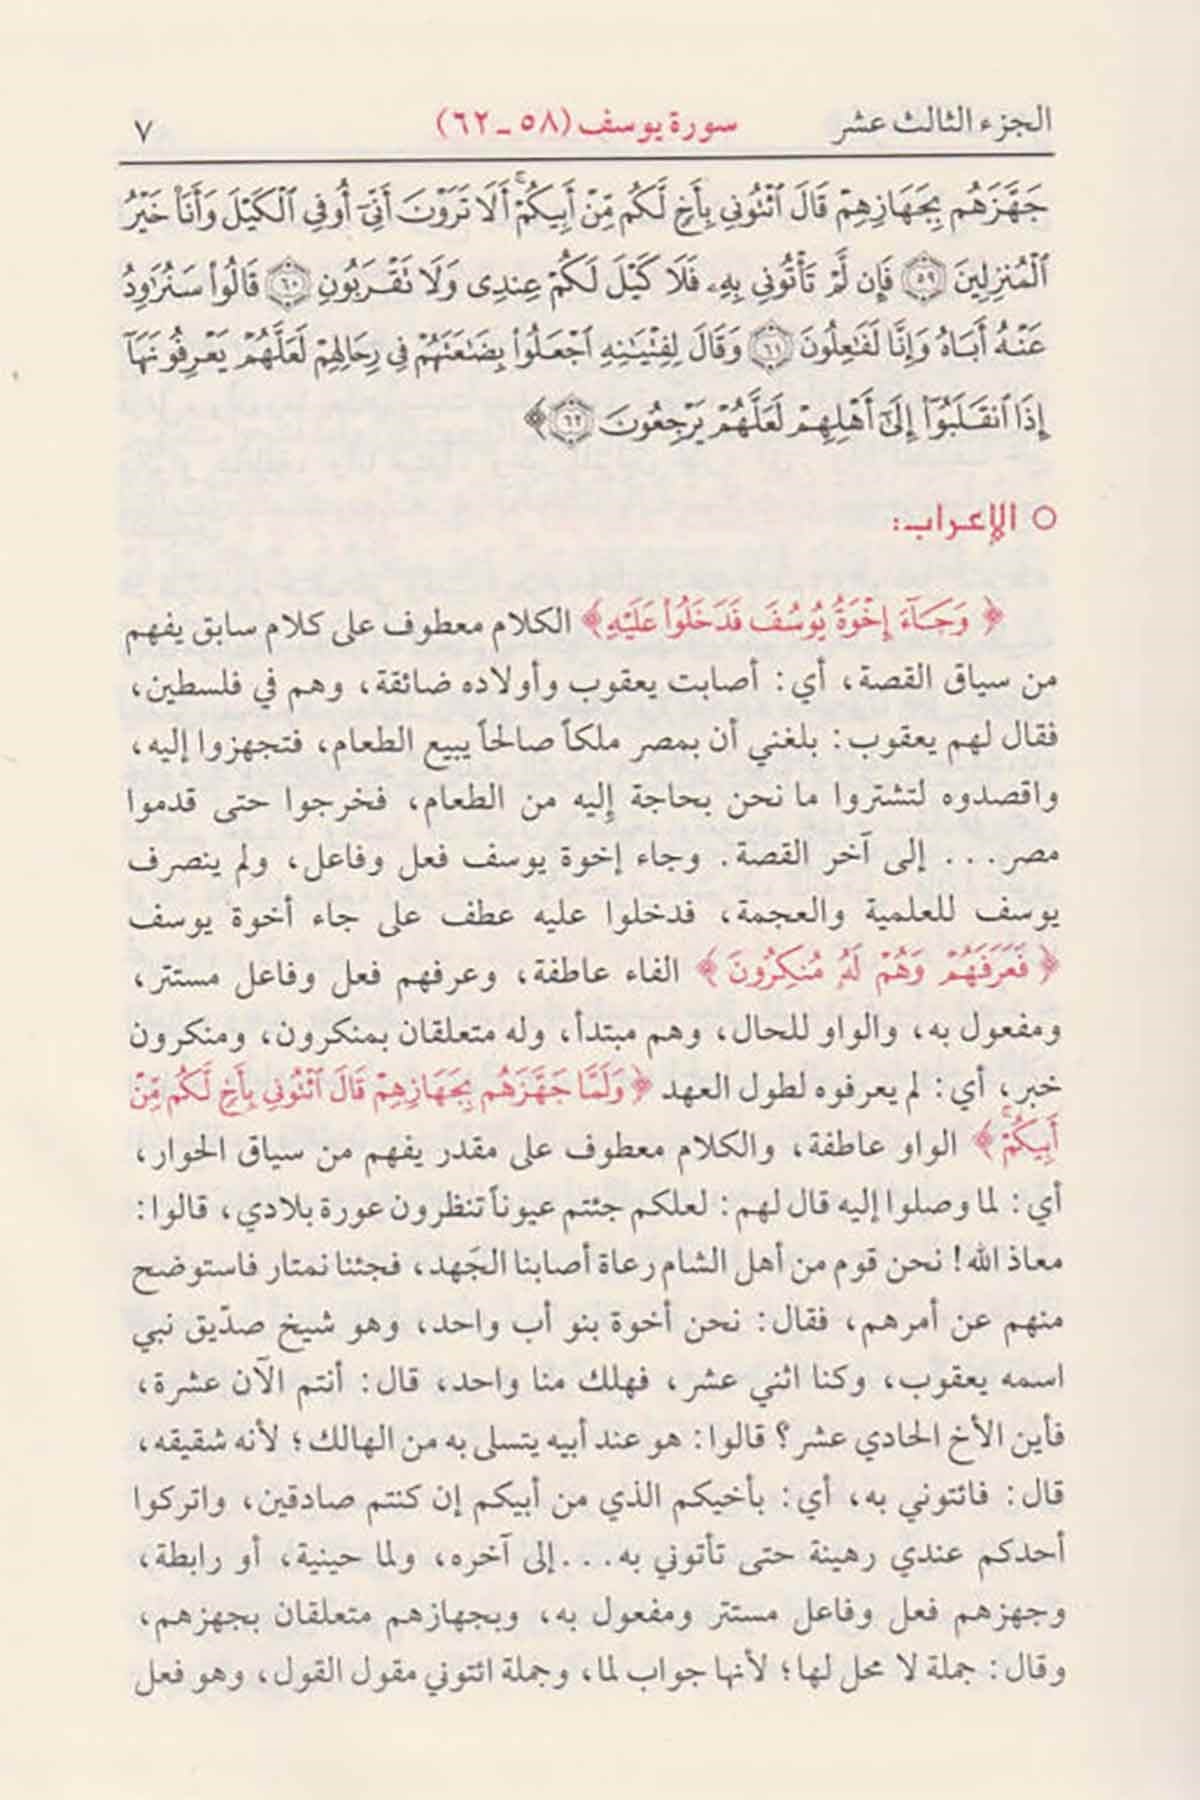 الجزء الثالث عشر سورة يوسف (٥٨ - ٦٢) ٧
جَهَّزَهُم بِجَهَازِهِمْ قَالَ ٱئْتُونِي بِأَخٍ لَّكُم مِّنْ أَبِيكُمْ ۚ أَلَا تَرَوْنَ أَنِّىٓ أُوفِى ٱلْكَيْلَ وَأَنَا۠ خَيْرُ
ٱلْمُنزِلِينَ ٥٩ فَإِن لَّمْ تَأْتُونِي بِهِۦ فَلَا كَيْلَ لَكُمْ عِندِى وَلَا تَقْرَبُونِ ٦٠ قَالُوا۟ سَنُرَٰوِدُ
عَنْهُ أَبَاهُ وَإِنَّا لَفَٰعِلُونَ ٦١ وَقَالَ لِفِتْيَٰنِهِ ٱجْعَلُوا۟ بِضَٰعَتَهُمْ فِى رِحَالِهِمْ لَعَلَّهُمْ يَعْرِفُونَهَآ
إِذَا ٱنقَلَبُوٓا۟ إِلَىٰٓ أَهْلِهِمْ لَعَلَّهُمْ يَرْجِعُونَ ٦٢﴾
○ الإعراب:
﴿وَجَآءَ إِخْوَةُ يُوسُفَ فَدَخَلُوا۟ عَلَيْهِ﴾ الكلام معطوف على كلام سابق يفهم
من سياق القصة، أي: أصابت يعقوب وأولاده ضائقة، وهم في فلسطين،
فقال لهم يعقوب: بلغني أن بمصر ملكاً صالحاً يبيع الطعام، فتجهزوا إليه،
واقصدوه لتشتروا ما نحن بحاجة إليه من الطعام، فخرجوا حتى قدموا
مصر... إلى آخر القصة. وجاء إخوة يوسف فعل وفاعل، ولم ينصرف
يوسف للعلمية والعجمة، فدخلوا عليه عطف على جاء أخوة يوسف
﴿فَعَرَفَهُمْ وَهُمْ لَهُۥ مُنكِرُونَ﴾ الفاء عاطفة، وعرفهم فعل وفاعل مستتر،
ومفعول به، والواو للحال، وهم مبتدأ، وله متعلقان بمنكرون، ومنكرون
خبر، أي: لم يعرفوه لطول العهد ﴿وَلَمَّا جَهَّزَهُم بِجَهَازِهِمْ قَالَ ٱئْتُونِي بِأَخٍ لَّكُم مِّنْ
أَبِيكُمْ ۚ﴾ الواو عاطفة، والكلام معطوف على مقدر يفهم من سياق الحوار،
أي: لما وصلوا إليه قال لهم: لعلكم جئتم عيوناً تنظرون عورة بلادي، قالوا:
معاذ الله! نحن قوم من أهل الشام رعاة أصابنا الجَهد، فجئنا نمتار فاستوضح
منهم عن أمرهم، فقال: نحن أخوة بنو أب واحد، وهو شيخ صدّيق نبي
اسمه يعقوب، وكنا اثني عشر، فهلك منا واحد، قال: أنتم الآن عشرة،
فأين الأخ الحادي عشر؟ قالوا: هو عند أبيه يتسلى به من الهالك؛ لأنه شقيقه،
قال: فائتوني به، أي: بأخيكم الذي من أبيكم إن كنتم صادقين، واتركوا
أحدكم عندي رهينة حتى تأتوني به...إلى آخره، ولما حينية، أو رابطة،
وجهزهم فعل وفاعل مستتر ومفعول به، وبجهازهم متعلقان بجهزهم،
وقال: جملة لا محل لها؛ لأنها جواب لما، وجملة ائتوني مقول القول، وهو فعل